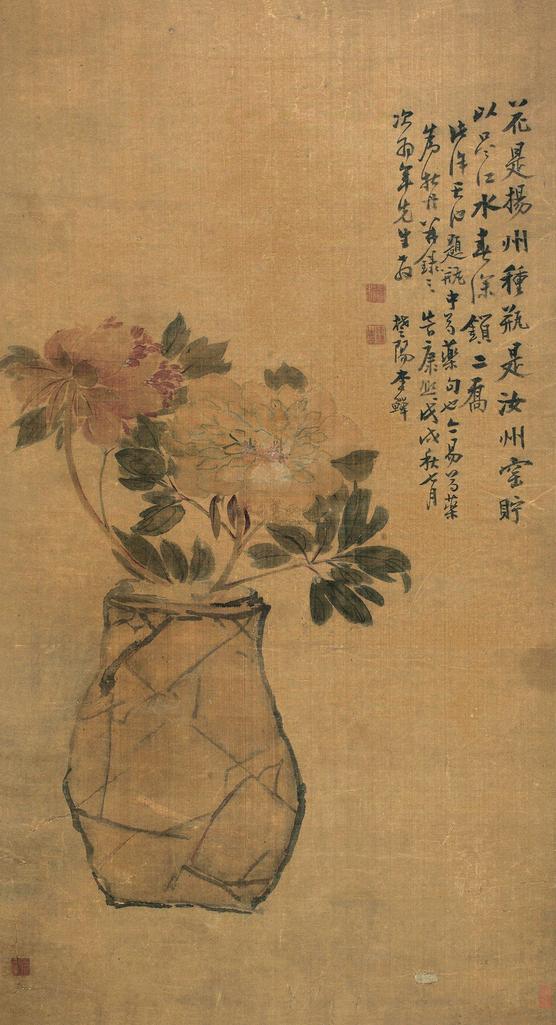 花是揚州種瓶是汝州窑貯
以吳江水春深鎖二喬
此許玉沙題瓶中芍藥句也今易芍藥
為牡丹并錄之 峕康熙戊戌秋七月
次雨年先生教 楚陽李鱓